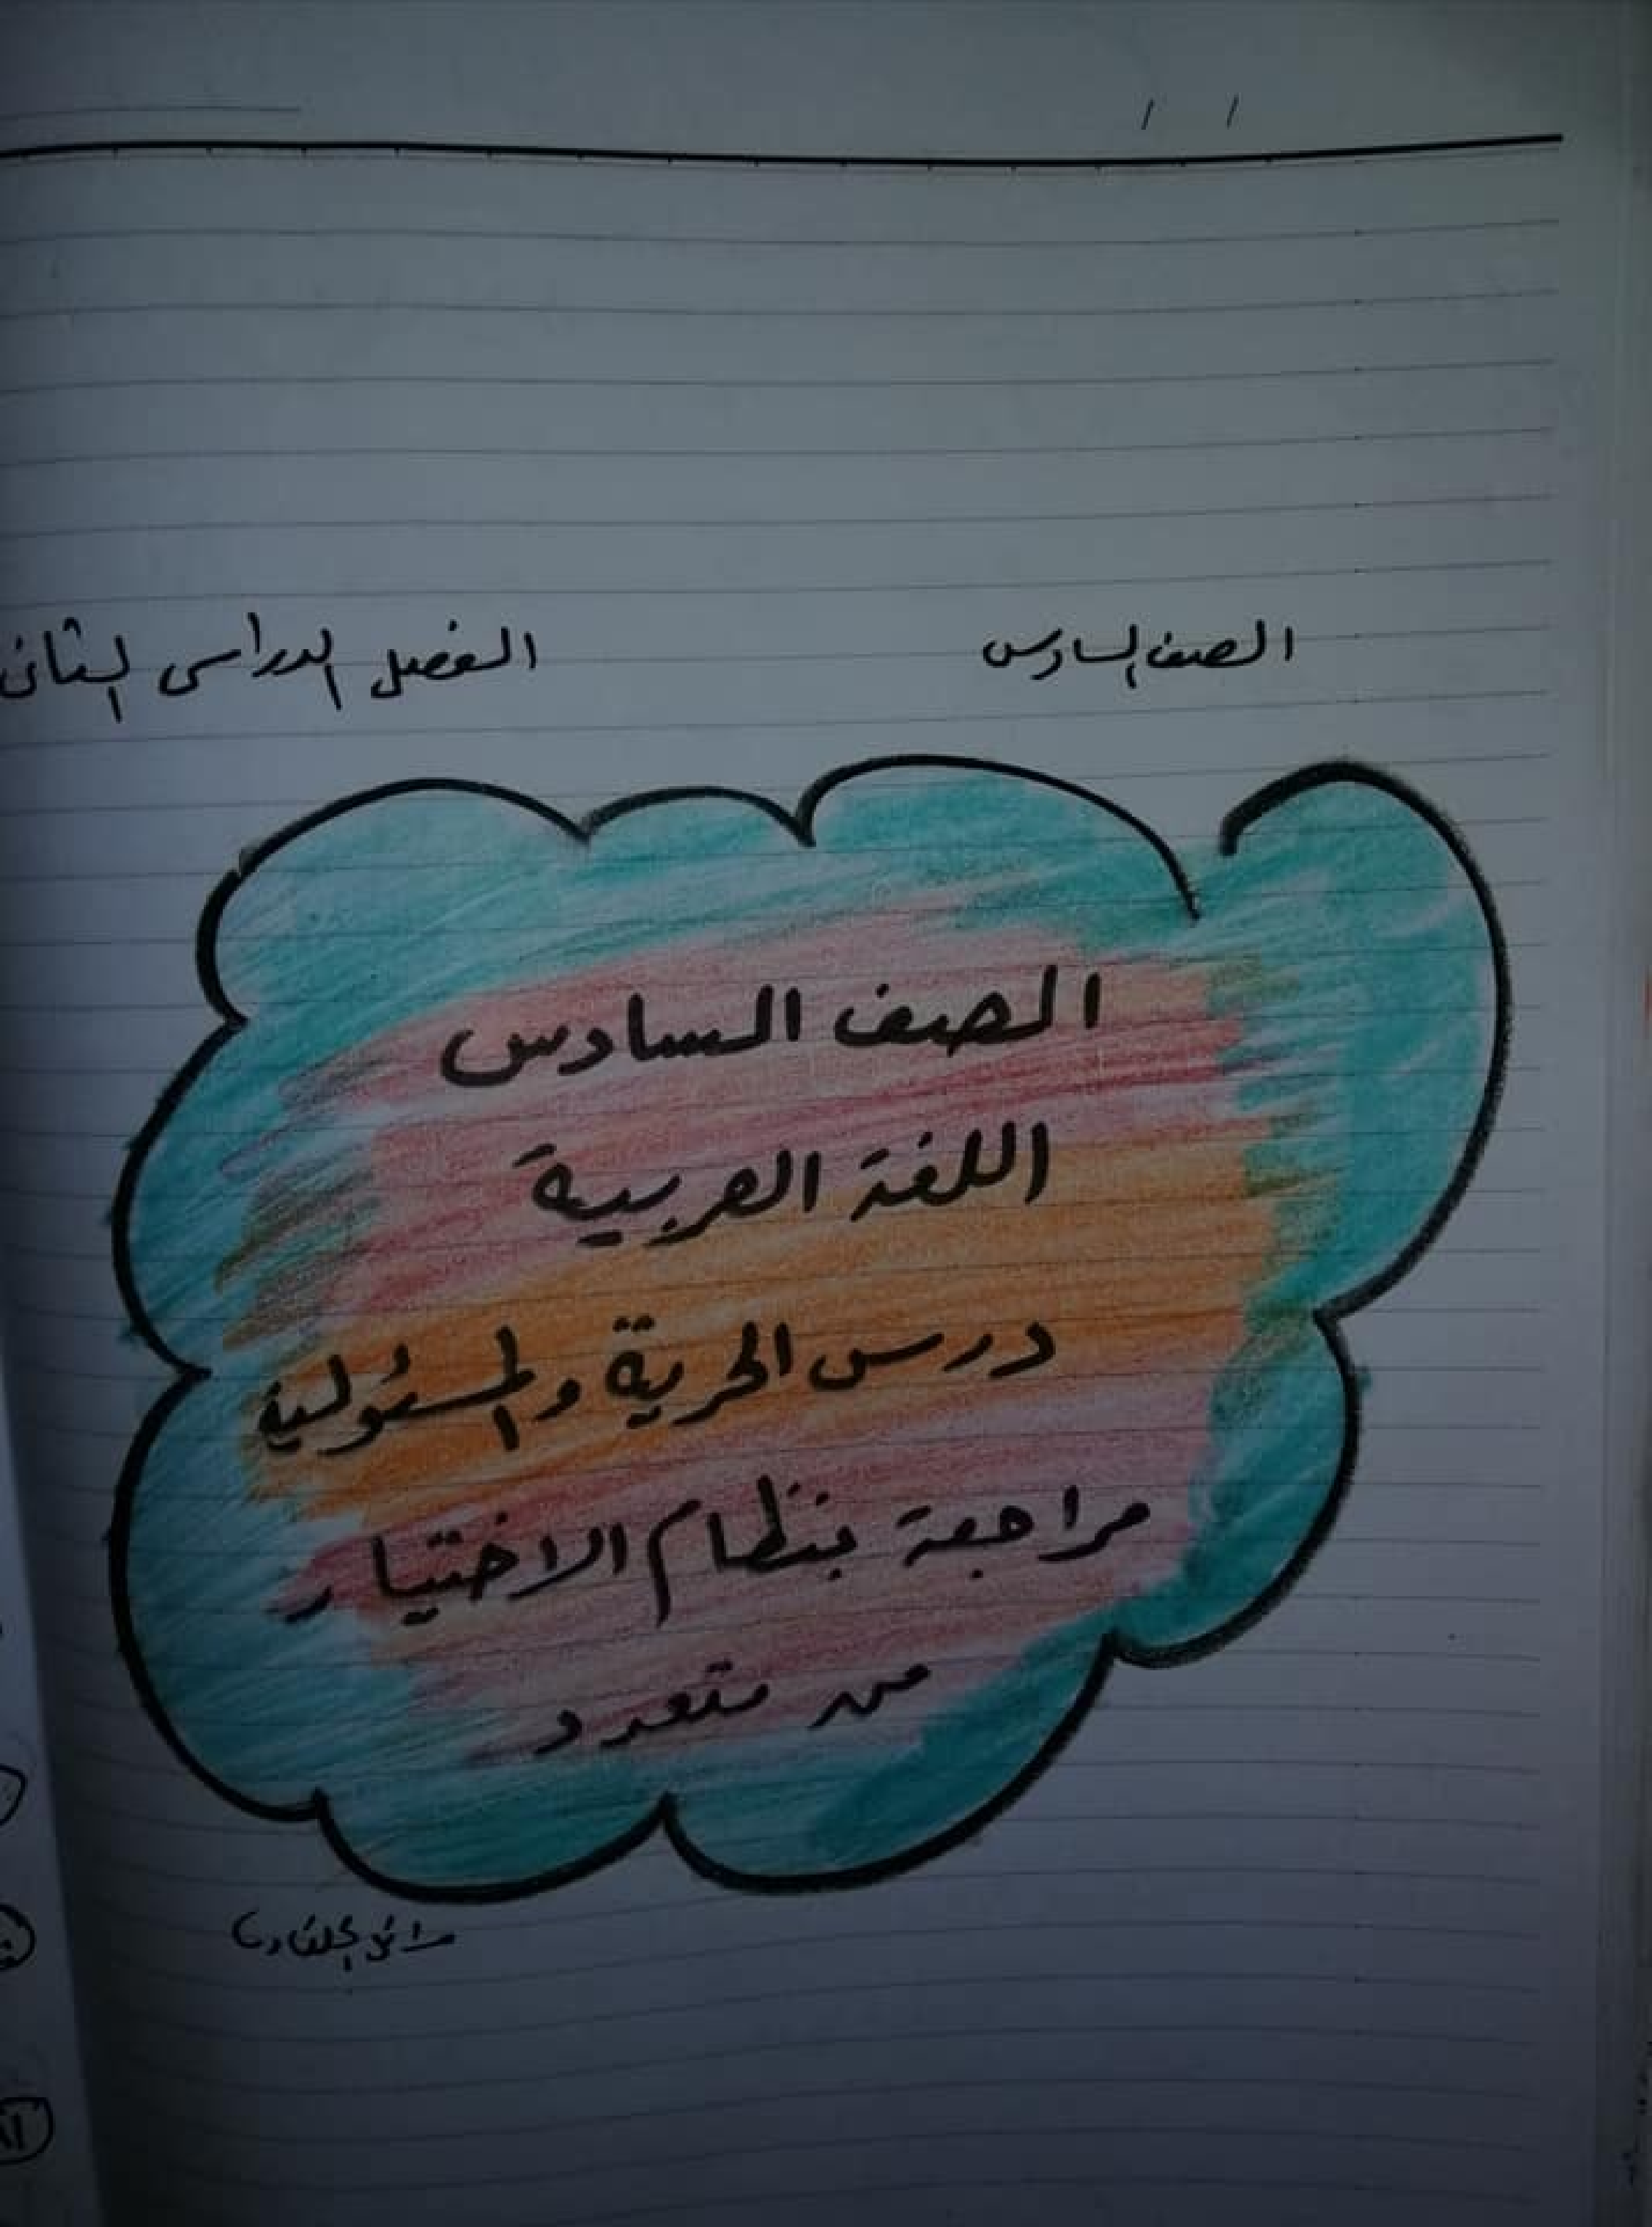 الصف السادس
الفصل الدراسى الثانى
الصف السادس
اللغة العربية
درس الحرية والمسئولية
مراجعة بنظام الاختيار
من متعدد